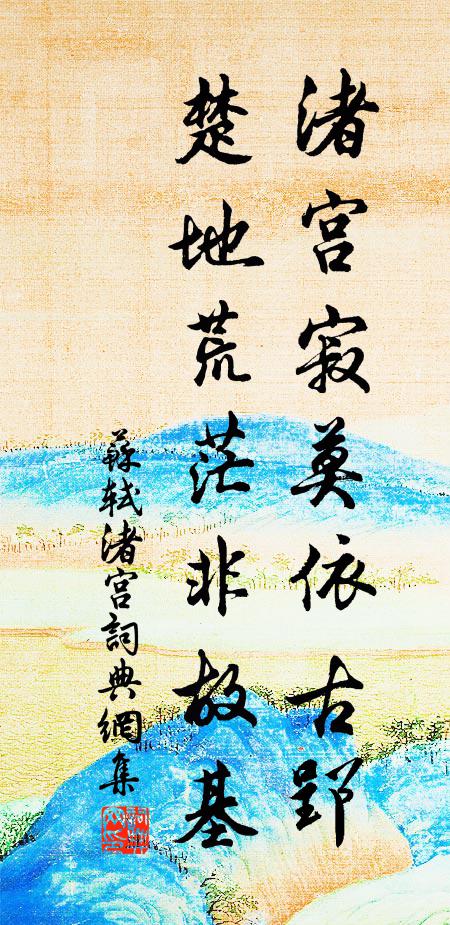 渚宫寂莫依古郢
楚地荒茫非故基
蘇轼渚宫詞典網集